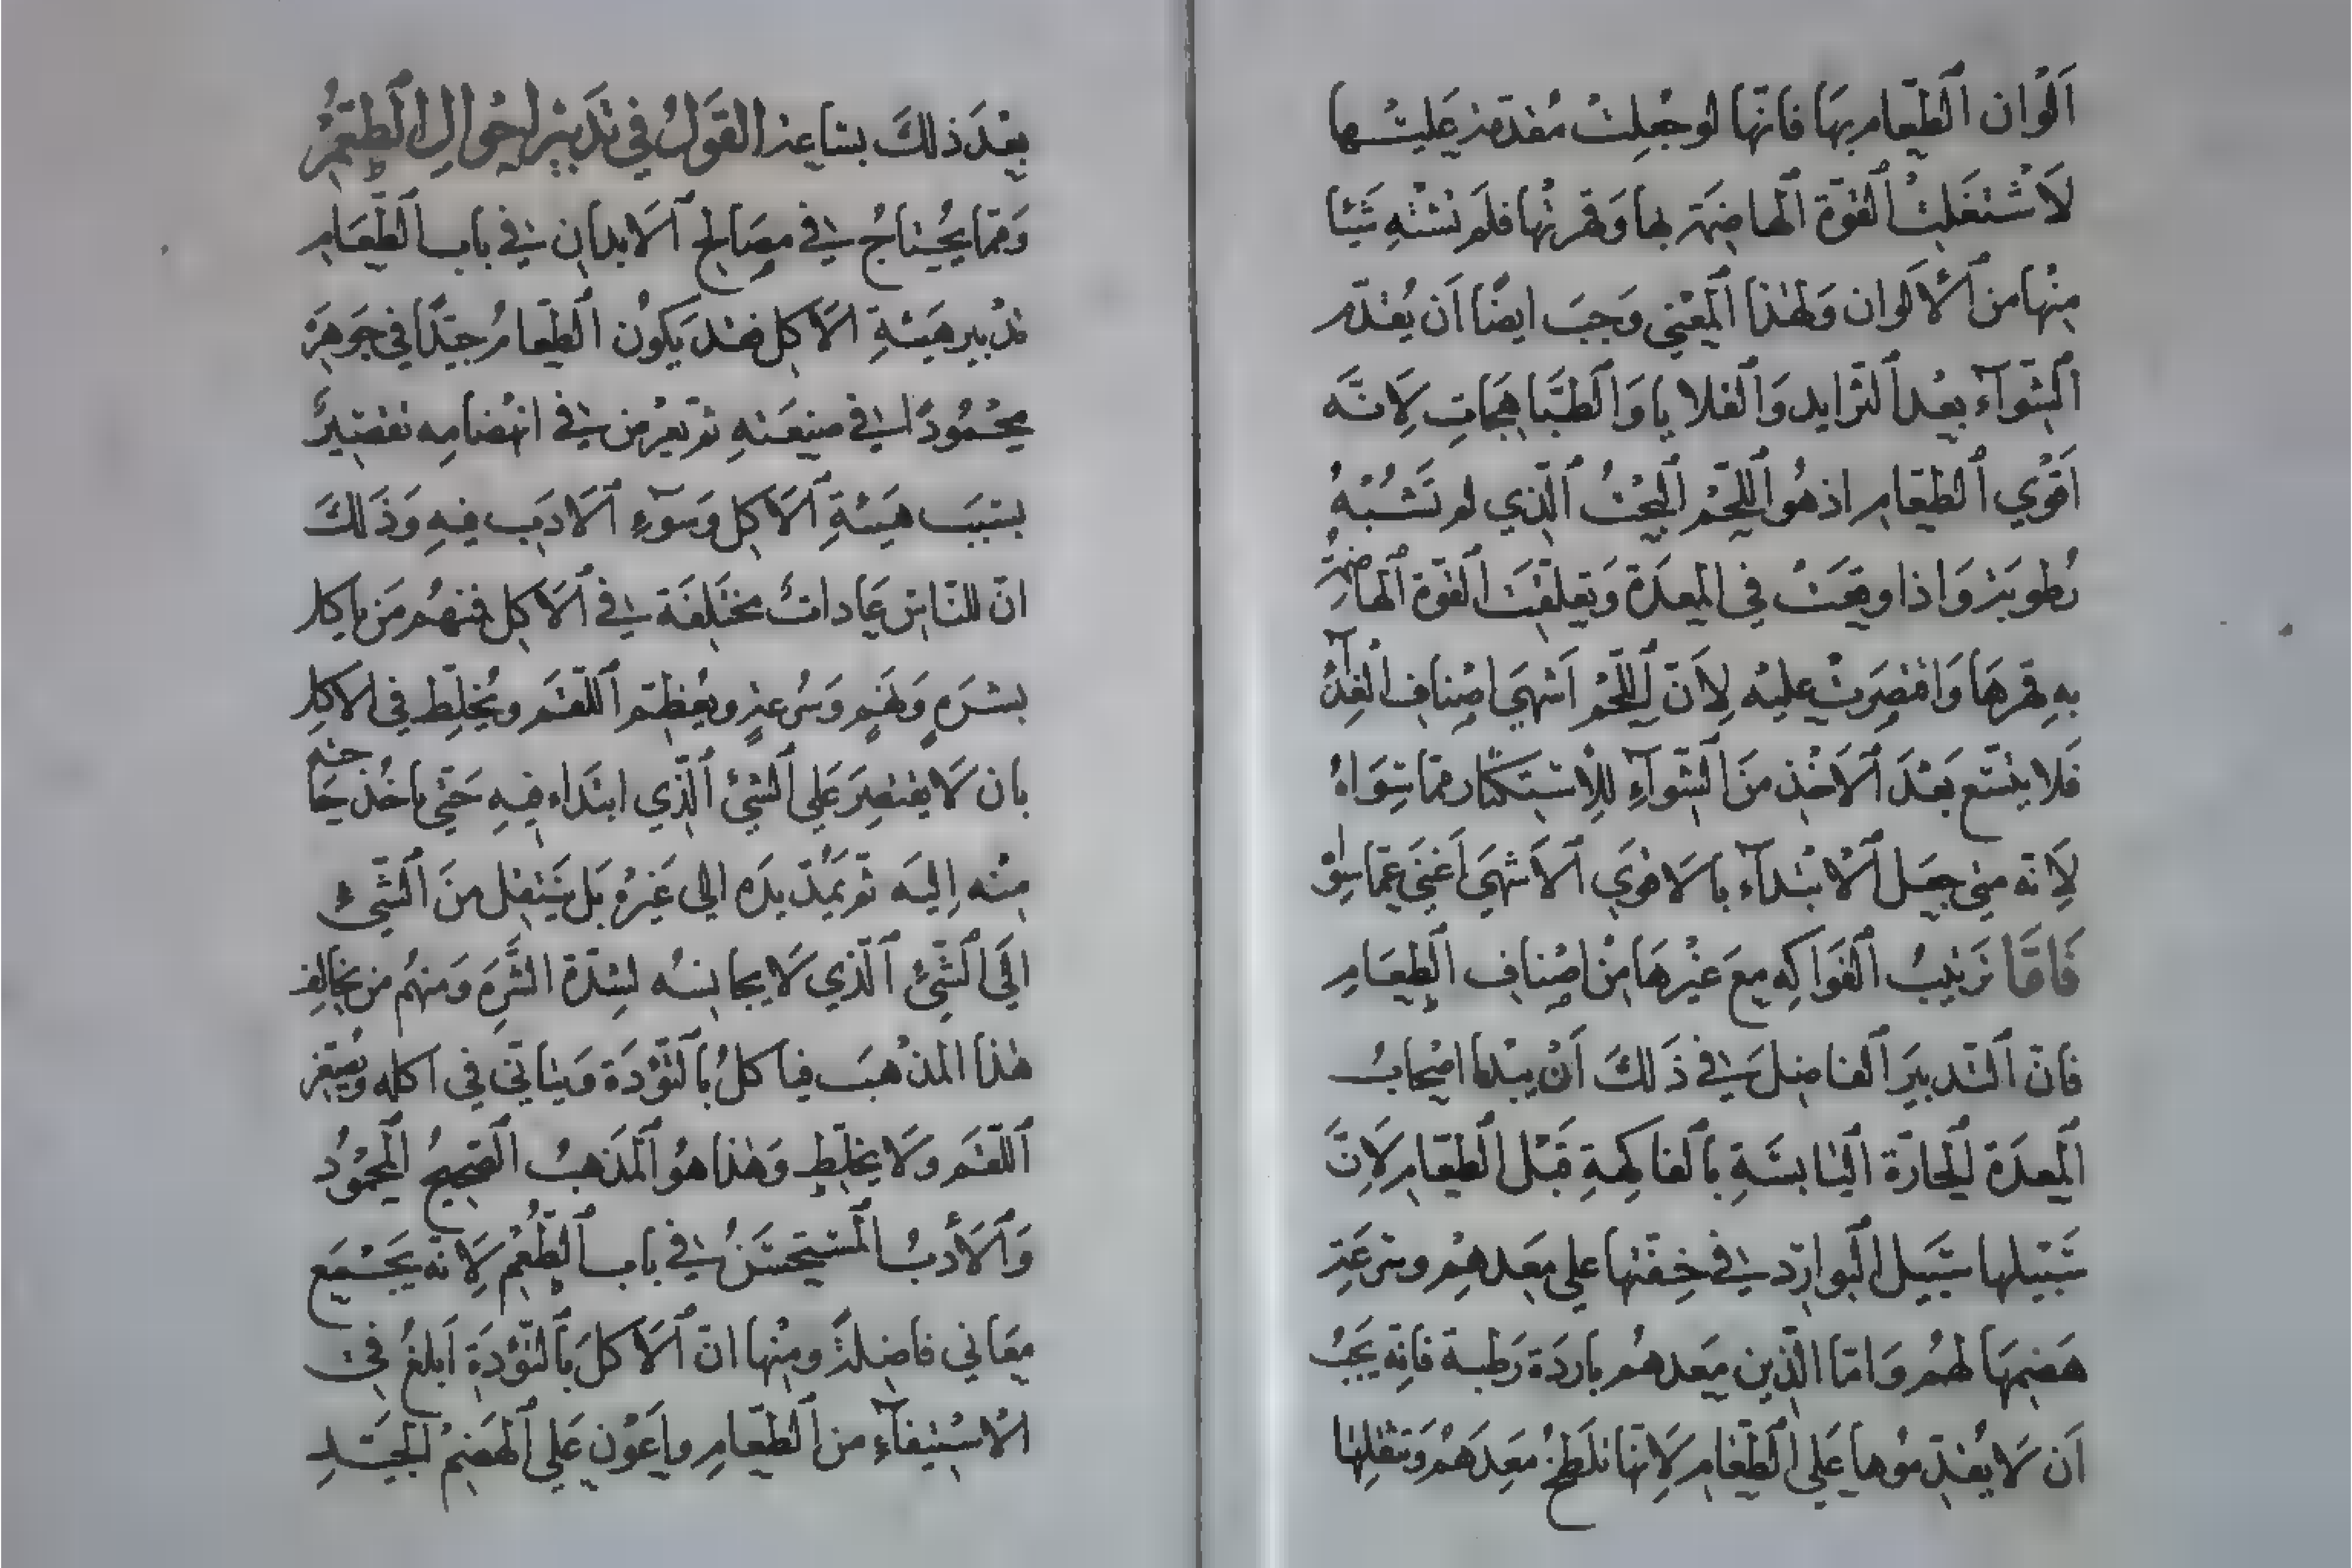 اَلْوان الطّعام بهَا فانّها لو جُعِلتْ مُقدّمة عَليْهــا
لَاشْتغَلتْ القوّة الهاضِمَة بها وَقهرتْها فلَم تشْتهِ شَيْئا
مِنْها من الْألوان وَلهٰذا المعْني وَجبَ ايضًا اَن يُقدّم
الشّوآء بعْد الثّرايد وَالقلايا وَالطبَّاهجَاتِ لِانَّه
اَقوْي الطعَام اذ هُو اللحْم البحْتُ الّذي لم تَشُبْهُ
رُطوبَة وَاذا وقعَتْ في المعدَة وَتعلقَت القوّة الهاضِمَةُ
بهِ قهرهَا وَاقتصَرتْ عليْه لِاَنّ اللّحْم اَشهَي اصْناف الغِذآءِ
فلا يتّسع بَعْدَ الاَخْذ مِنَ الشّوآءِ لِلاْستكثار ممّا سِوَاهُ
لِانّه متي جعَل الْابْتدآء بالاقوَي الاَشهَي اَغنَي عَمّا سِوٰهُ
فَامَّا تَرتيبُ الفَواكِه معَ غيْرهَا مِنْ اصْناف الطعَامِ
فانّ التّدبيرَ الفاضِلَ في ذَلكَ اَنْ يبْدأ اصْحابُ
المعِدَة الحارّة اليابسَةِ بالفاكِهةِ قبْل الطعَام لِاَنَّ
سَبيْلها سَبيل البوارِد في خِفّتها علي مِعَدهِمْ وسرعَةِ
هَضمِهَا لهُم وَامّا الّذين مِعَدهُم باردَة رَطبة فانّه يَجبُ
اَن لَا يُقدّمُوها عَلي الطّعَام لِانّها تلَطخُ مِعَدَهُم وَتثقلهَا
بعْدَ ذلكَ بسَاعة القَولُ في تَدبيْر اَحْوالِ الطّعْمِ
وَممّا يحْتاجُ في مصَالح الَابدانِ في باب الطّعَام
تدْبير هَيْئةِ الاَكل فقد يَكوُن الطّعامُ جيّدًا في جَوهَرِهِ
محْمُودًا في صنعَتهِ ثم يَعْرض في انهضَامِه تقصيْرٌ
بسَببَ هَيْئةِ الَاكل وَسوٓءِ الادَب فيهِ وَذَلكَ
انّ للنّاسِ عَاداتٌ مختَلِفَة في الَاكل فمنهُم مَن ياكل
بشرَهٍ وَنهَمٍ وَسُرعةٍ ويُعظِم اللّقَم ويُخلِّط في الاكلِ
بان لَا يقتصِرَ عَلي الشّئ الّذي ابتَداء فيهِ حَتّي ياخُذ حَاجته
مِنْه اِليَه ثم يَمُدّ يدَه الي غيَرهُ بَل يَنتقِل منَ الشّئ
الَي الشّئ الّذي لَا يجانسُه لشِدّة الشّرَهِ وَمنهُم من يخالِف
هٰذا المذْهبَ فياكلُ بالتّؤدَة وَيتاَنّي في اكله وَيُصَغّر
اللّقَم وَلَا يخلّط وَهٰذا هُو المذَهبُ الصّحِيحُ المحمُوُد
وَالَأدبُ المُستَحْسَنُ في باب الطُعْم لِانّه يَجْمَع
مَعَاني فاضِلةً ومِنْها انّ الَاكلَ بالتّؤدَةِ اَبلغُ في
الاسْتيفآءِ من الطّعَامِ وَاَعوْن عَلي الهَضمْ الجيَّدِ